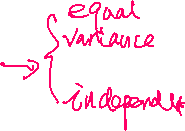 equal
variance
independent